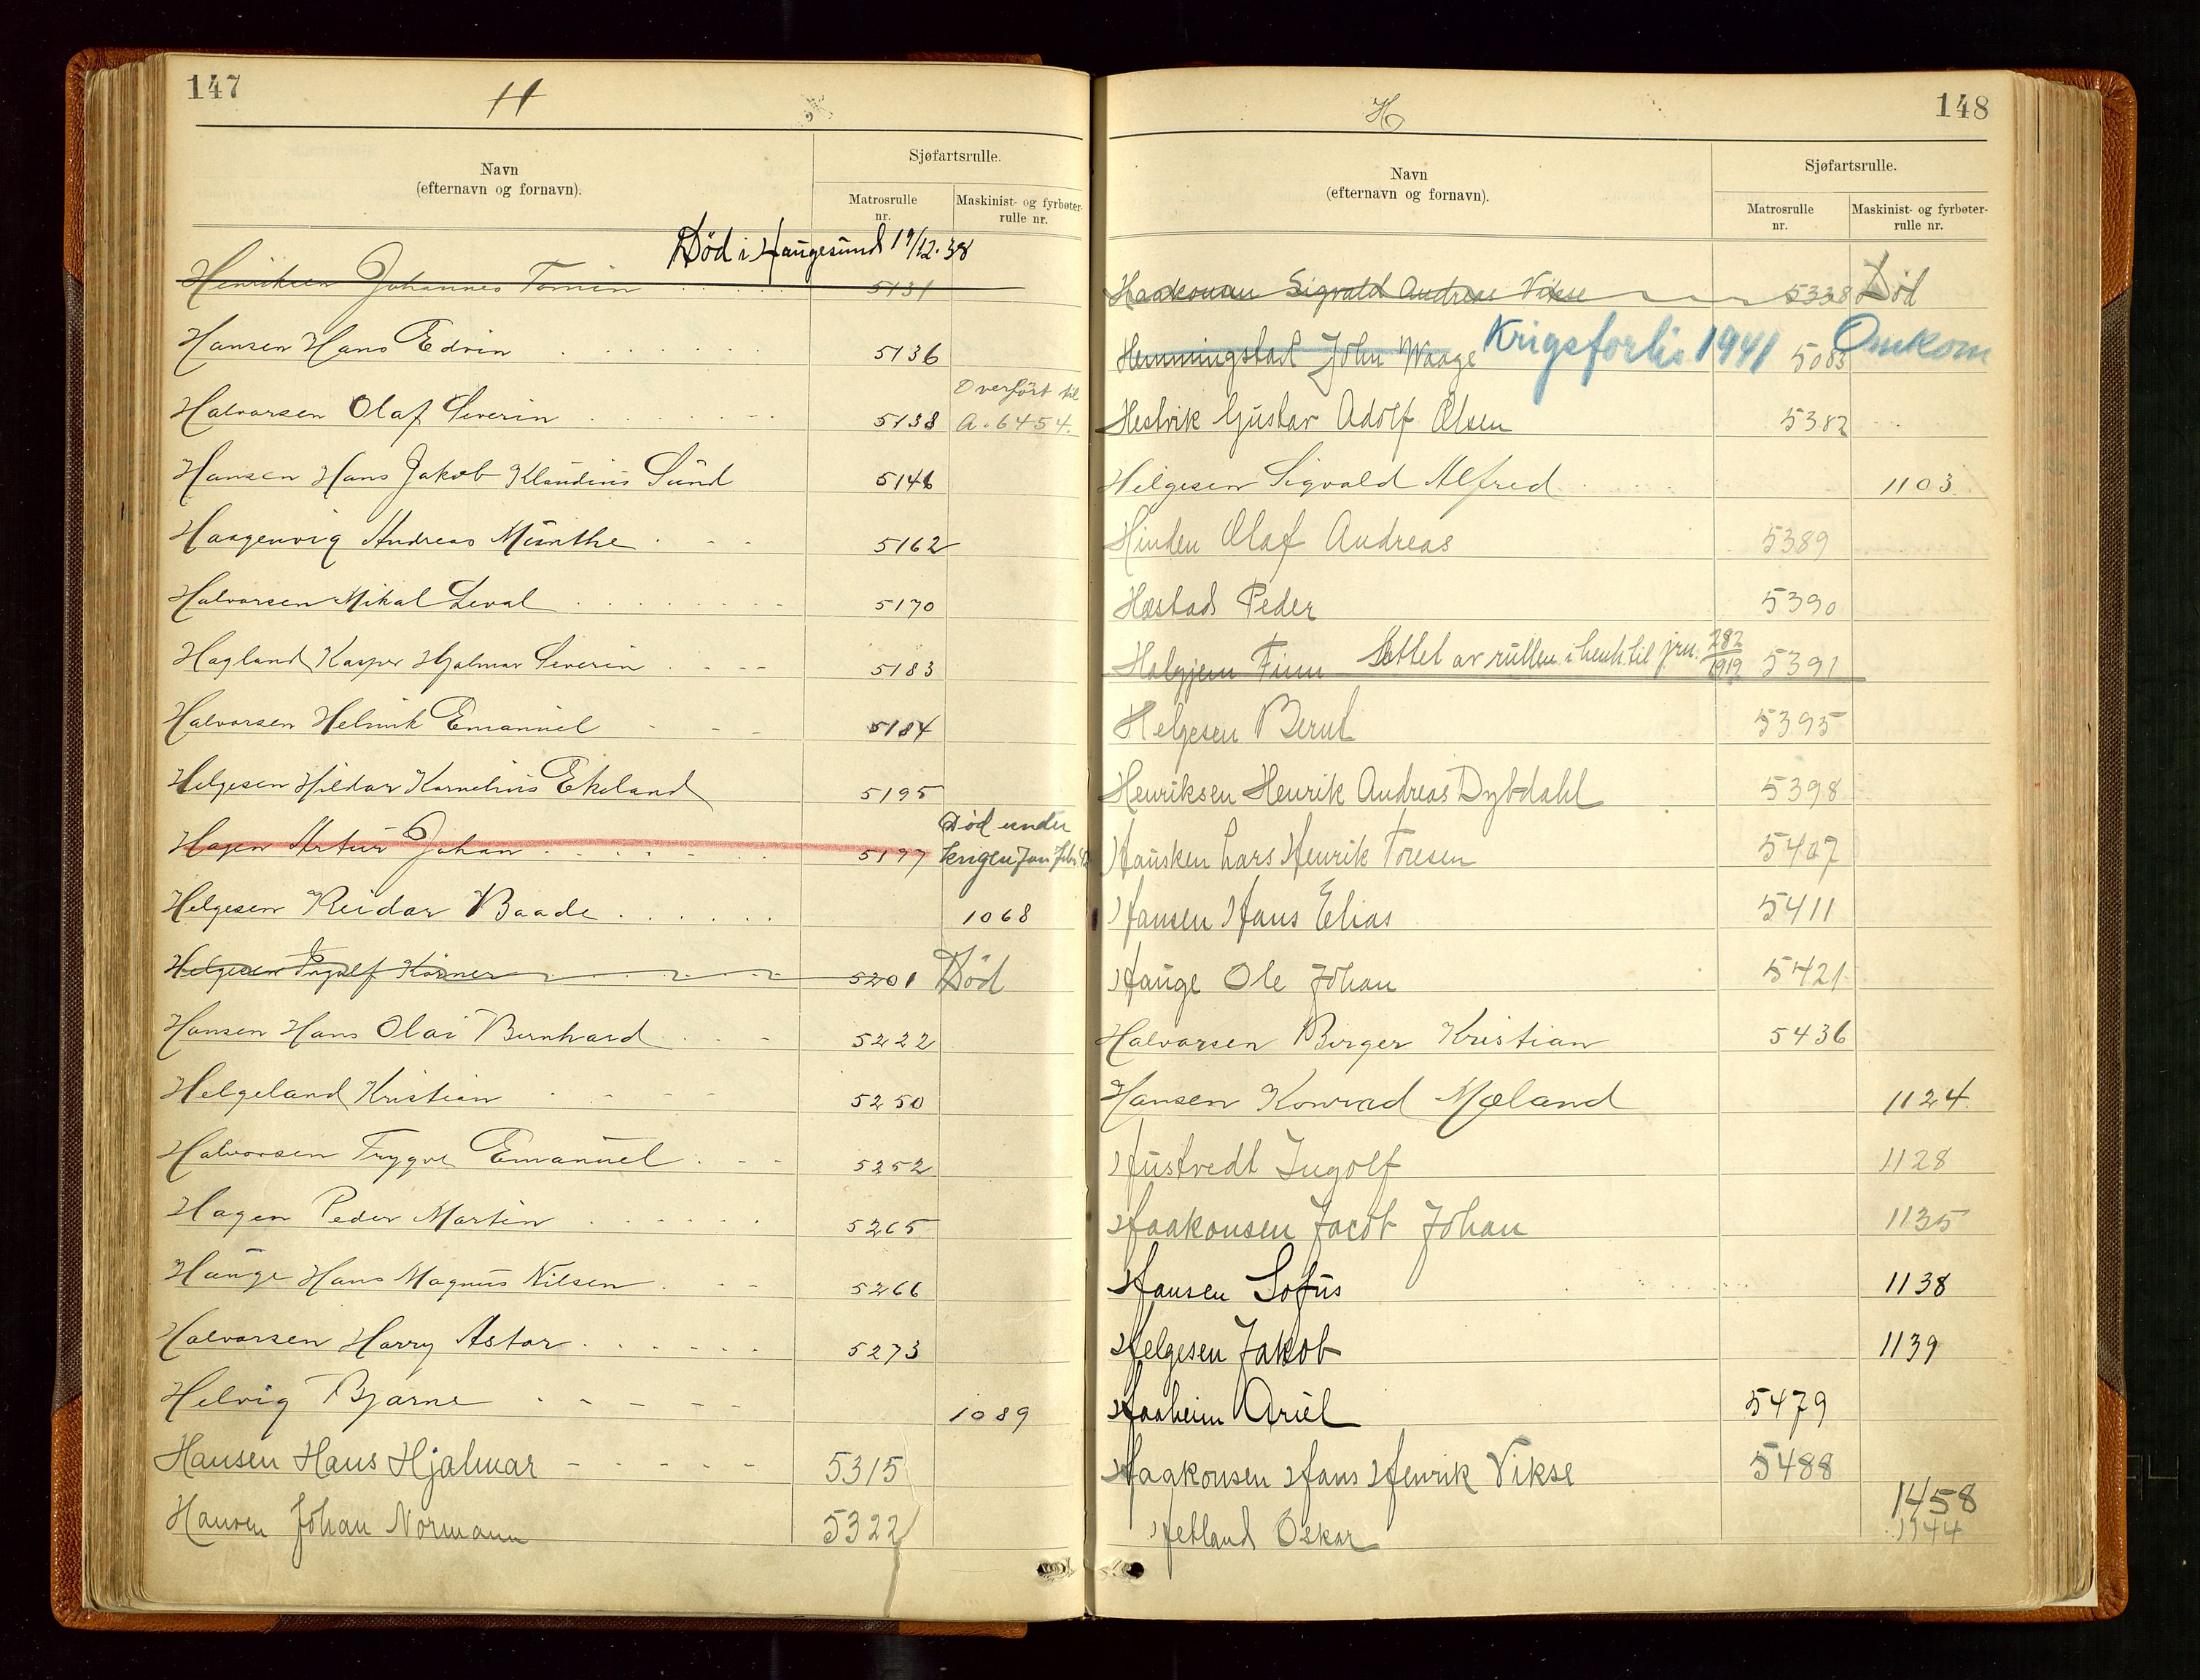 147
H
Navn
(efternavn og fornavn).
Sjøfartsrulle.
Matrosrulle
nr.
Maskinist- og fyrbøter-
rulle nr.
Død i Haugesund 17/12.38
Henriksen Johannes 5131
Hansen Hans Edvin 5136
Overført til
Halvorsen Olaf Severin 5138 A. 6454.
Hansen Hans Jakob Klaudius Sund 5146
Haagenvig Andreas Munthe 5162
Halvorsen Mikal Leval 5170
Hagland Kasper Hjalmar Severin 5183
Halvorsen Helmik Emanuel 5184
Helgesen Hildar Kornelius Ekeland 5195
Død under
Hagen Artur Johan 5197 krigen Jan Febr.
Helgesen Reidar Baade 1068
Helgesen Ingolf Körner 5201 Død
Hansen Hans Olai Bernhard 5222
Helgeland Kristian 5250
Halvorsen Trygve Emanuel 5252
Hagen Peder Martin 5265
Hauge Hans Magnus Nilsen 5266
Halvorsen Harry Astor 5273
Helvig Bjarne 1089
Hansen Hans Hjalmar 5315
Hansen Johan Normann 5322
H
148
Navn
(efternavn og fornavn).
Sjøfartsrulle.
Matrosrulle
nr.
Maskinist- og fyrbøter-
rulle nr.
Haakonsen Sigvald Andreas Vikse 5338 Død
Hemmingstad John Waage Krigsforlis 1941 5083 Omkom
Hestvik Gustav Adolf Olsen 5382
Helgesen Sigvald Alfred 1103
Hinden Olaf Andreas 5389
Hæstad Peder 5390
Halgjem Finn Slettet av rullen i henh. til jrn. 282/1919 5391
Helgesen Bernt 5395
Henriksen Henrik Andreas Dybdahl 5398
Hausken Lars Henrik Toresen 5407
Hansen Hans Elias 5411
Hauge Ole Johan 5421
Halvorsen Birger Kristian 5436
Hansen Konrad Mæland 1124
Hustvedt Ingolf 1128
Haakonsen Jacob Johan 1135
Hansen Sofus 1138
Helgesen Jakob 1139
Haaheim Ariel 5479
Haakonsen Hans Henrik Vikse 5488
1458
Hetland Oskar 1144